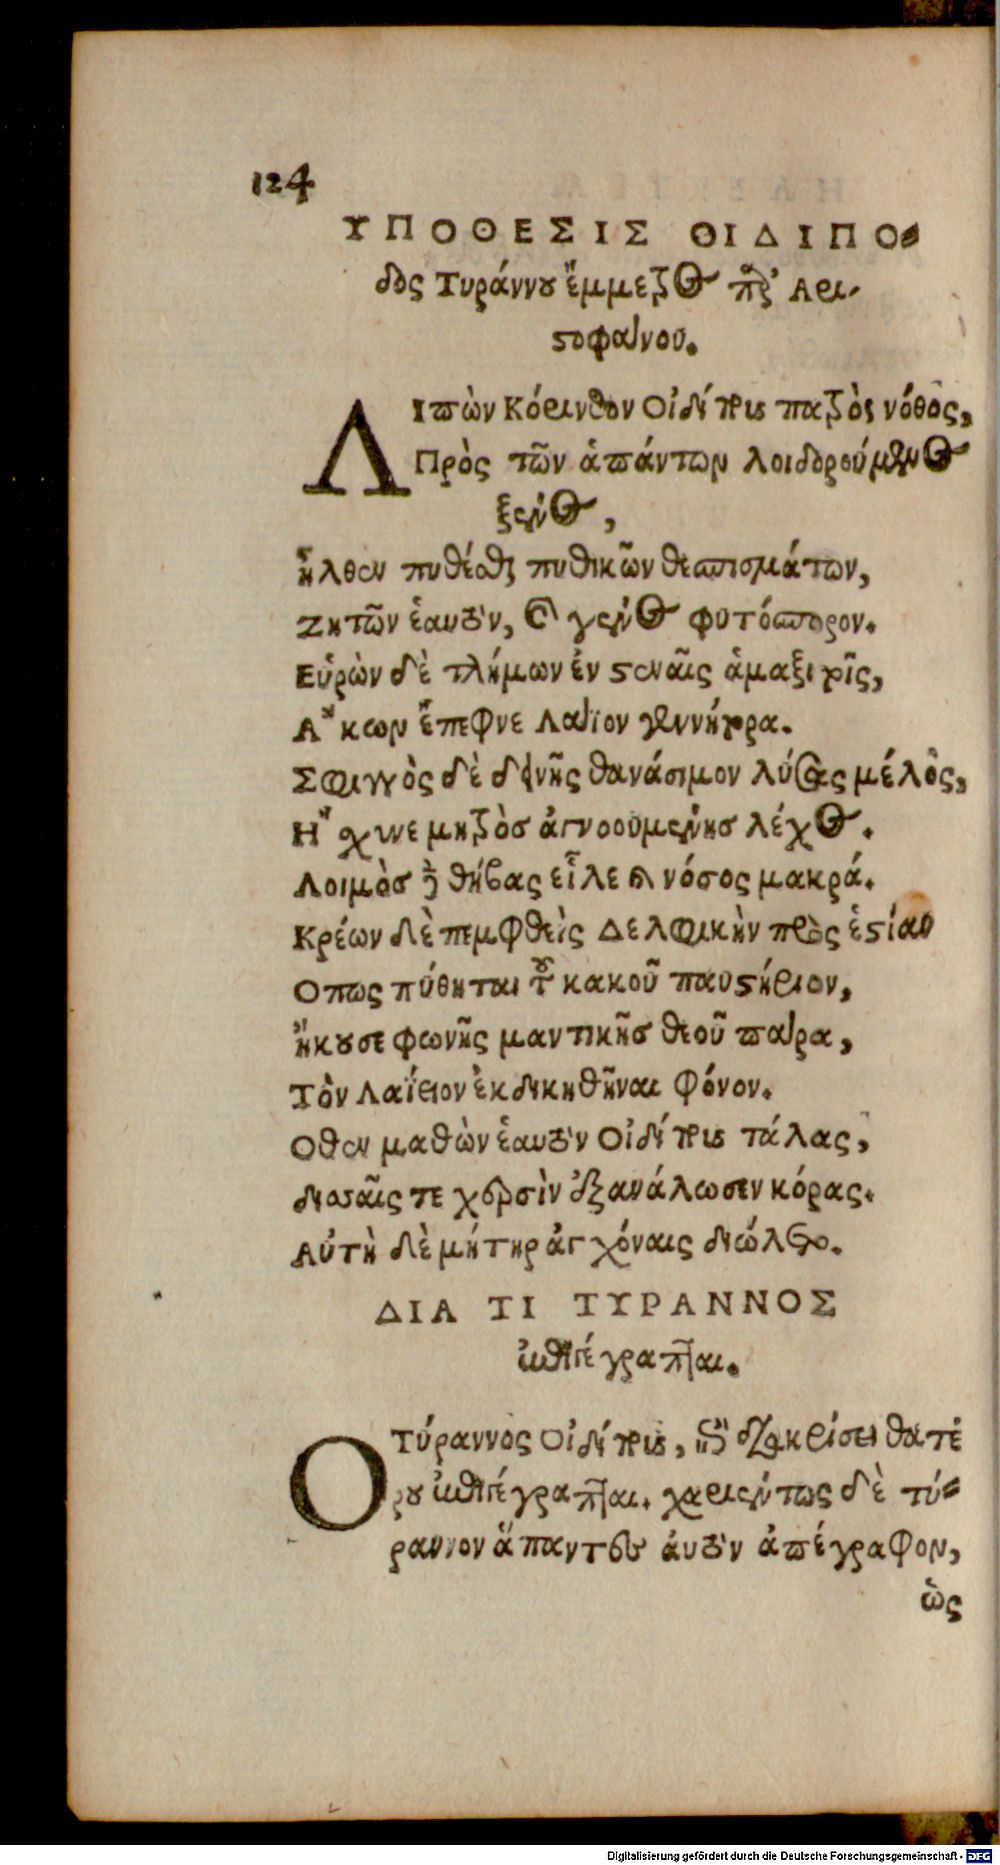 124
ΥΠΟΘΕΣΙΣ ΟΙΔΙΠΟ-
δος Τυράννου ἔμμετρος παρ' Αρι-
στοφάνους.
Λιπὼν Κόρινθον Οἰδίπους πατρὸς νόθος,
Πρὸς τῶν ἁπάντων λοιδορούμενος
ξένος,
ἦλθεν πυθέσθαι πυθικῶν θεσπισμάτων,
Ζητῶν ἑαυτὸν, καὶ γένος φυτόσπορον.
Εὑρὼν δὲ τλήμων ἐν στεναῖς ἁμαξιτοῖς,
Ἄκων ἔπεφνε Λάϊον γεννήτορα.
Σφιγγὸς δὲ δεινῆς θανάσιμον λύσας μέλος,
Ἤσχυνε μητρὸσ ἀγνοουμένησ λέχος.
Λοιμὸσ δὲ θήβας εἷλε καὶ νόσος μακρά.
Κρέων δὲ πεμφθεὶς Δελφικὴν πρὸς ἑστίαν
Οπως πύθηται τοῦ κακοῦ παυστήριον,
ἤκουσε φωνῆς μαντικῆσ θεοῦ πάρα,
Τὸν Λαΐειον ἐκδικηθῆναι φόνον.
Οθεν μαθὼν ἑαυτὸν Οἰδίπους τάλας,
δισσαῖς τε χερσὶν ἐξανάλωσεν κόρας.
Αὐτὴ δὲ μήτηρ ἀγχόναις διώλετο.
ΔΙΑ ΤΙ ΤΥΡΑΝΝΟΣ
ἐπιγέγραπται.
Ο Τύραννος Οἰδίπους, ἐπὶ διακρίσει θατέ
ρου ἐπιγέγραπται. χαριέντως δὲ τύ-
ραννον ἅπαντες ἀυτὸν ἀπέγραφον,
ὡς
Digitalisierung gefördert durch die Deutsche Forschungsgemeinschaft - DFG